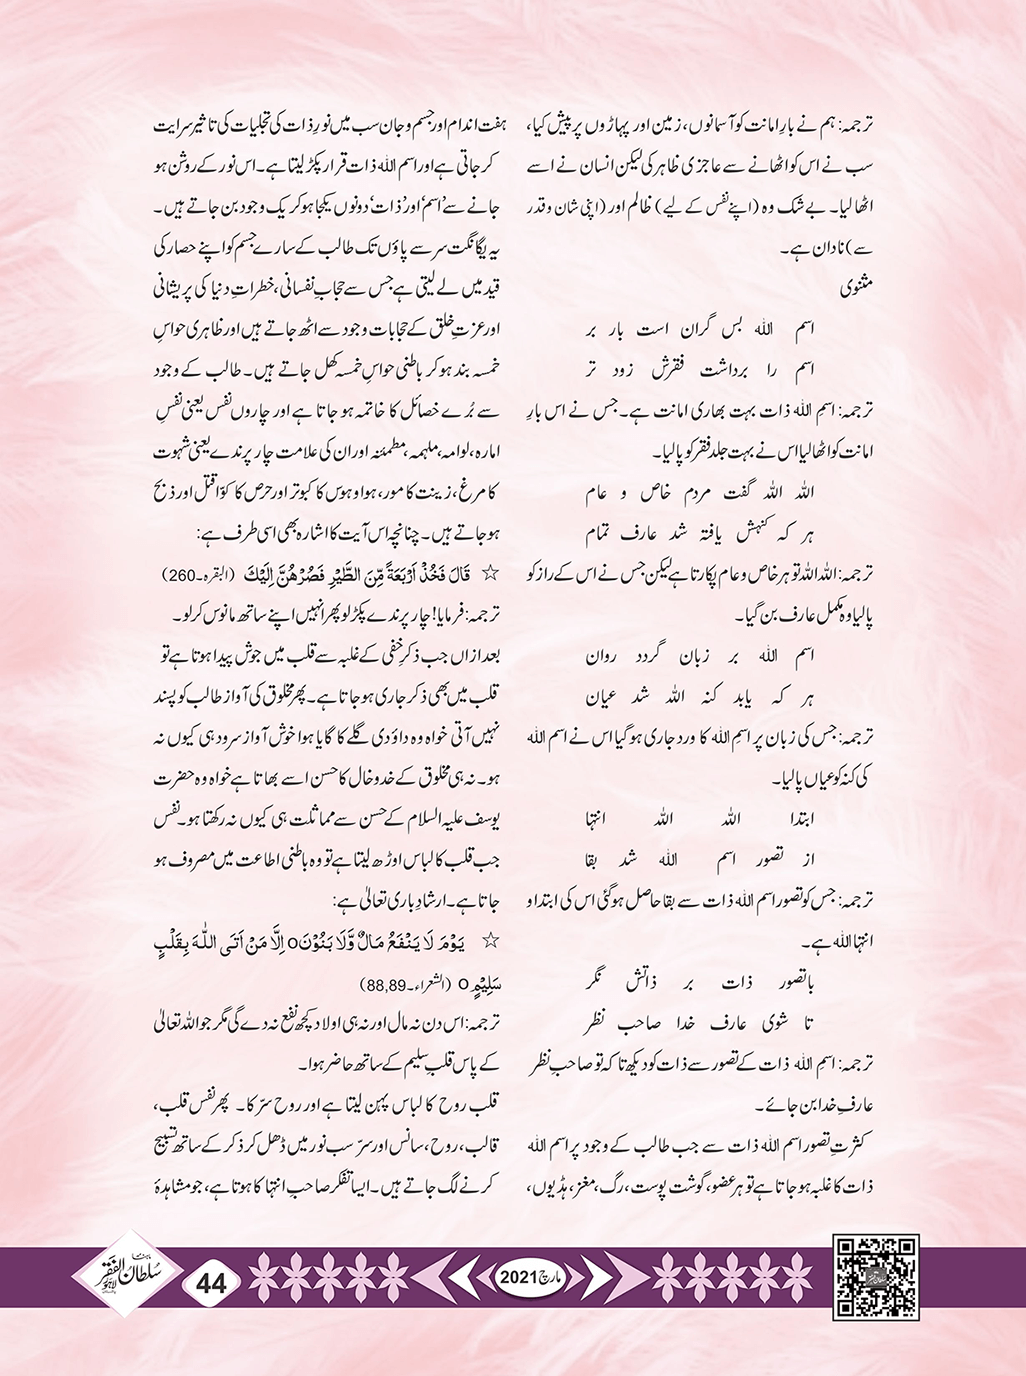 ترجمہ: ہم نے بارِ امانت کو آسمانوں، زمین اور پہاڑوں پر پیش کیا،
سب نے اس کو اٹھانے سے عاجزی ظاہر کی لیکن انسان نے اسے
اٹھا لیا۔ بے شک وہ (اپنے نفس کے لیے) ظالم اور (اپنی شان و قدر
سے) نادان ہے۔
مثنوی
اسم اللہ بس گران است بار بر
اسم را برداشت فقرش زود تر
ترجمہ: اسمِ اللہ ذات بہت بھاری امانت ہے۔ جس نے اس بارِ
امانت کو اٹھا لیا اس نے بہت جلد فقر کو پا لیا۔
اللہ اللہ گفت مردم خاص و عام
ہر کہ کنہش یافتہ شد عارف تمام
ترجمہ: اللہ اللہ تو ہر خاص و عام پکارتا ہے لیکن جس نے اس کے راز کو
پا لیا وہ مکمل عارف بن گیا۔
اسم اللہ بر زبان گردد روان
ہر کہ یابد کنہ اللہ شد عیان
ترجمہ: جس کی زبان پر اسمِ اللہ کا ورد جاری ہو گیا اس نے اسم اللہ
کی کنہ کو عیاں پا لیا۔
ابتدا اللہ اللہ انتہا
از تصور اسم اللہ شد بقا
ترجمہ: جس کو تصور اسم اللہ ذات سے بقا حاصل ہو گئی اس کی ابتدا و
انتہا اللہ ہے۔
باتصور ذات بر ذاتش نگر
تا شوی عارف خدا صاحب نظر
ترجمہ: اسمِ اللہ ذات کے تصور سے ذات کو دیکھ تا کہ تو صاحبِ نظر
عارفِ خدا بن جائے۔
کثرتِ تصور اسم اللہ ذات سے جب طالب کے وجود پر اسم اللہ
ذات کا غلبہ ہو جاتا ہے تو ہر عضو، گوشت پوست، رگ، مغز، ہڈیوں،
ہفت اندام اور جسم و جان سب میں نورِ ذات کی تجلیات کی تاثیر سرایت
کر جاتی ہے اور اسم اللہ ذات قرار پکڑ لیتا ہے۔ اس نور کے روشن ہو
جانے سے ’اسم‘ اور ’ذات‘ دونوں یکجا ہو کر یک وجود بن جاتے ہیں۔
یہ یگانگت سر سے پاؤں تک طالب کے سارے جسم کو اپنے حصار کی
قید میں لے لیتی ہے جس سے حجابِ نفسانی، خطراتِ دنیا کی پریشانی
اور عزتِ خلق کے حجابات وجود سے اٹھ جاتے ہیں اور ظاہری حواسِ
خمسہ بند ہو کر باطنی حواسِ خمسہ کھل جاتے ہیں۔ طالب کے وجود
سے بُرے خصائل کا خاتمہ ہو جاتا ہے اور چاروں نفس یعنی نفسِ
امارہ، لوامہ، ملہمہ، مطمئنہ اور ان کی علامت چار پرندے یعنی شہوت
کا مرغ، زینت کا مور، ہوا و ہوس کا کبوتر اور حرص کا کوّا قتل اور ذبح
ہو جاتے ہیں۔ چنانچہ اس آیت کا اشارہ بھی اسی طرف ہے:
☆ قَالَ فَخُذْ اَرْبَعَةً مِّنَ الطَّيْرِ فَصُرْهُنَّ اِلَيْكَ (البقرہ۔260)
ترجمہ: فرمایا! چار پرندے پکڑ لو پھر انہیں اپنے ساتھ مانوس کر لو۔
بعد ازاں جب ذکرِ خفی کے غلبہ سے قلب میں جوش پیدا ہوتا ہے تو
قلب میں بھی ذکر جاری ہو جاتا ہے۔ پھر مخلوق کی آواز طالب کو پسند
نہیں آتی خواہ وہ داؤدی گلے کا گایا ہوا خوش آواز سرود ہی کیوں نہ
ہو۔ نہ ہی مخلوق کے خدوخال کا حسن اسے بھاتا ہے خواہ وہ حضرت
یوسف علیہ السلام کے حسن سے مماثلت ہی کیوں نہ رکھتا ہو۔ نفس
جب قلب کا لباس اوڑھ لیتا ہے تو وہ باطنی اطاعت میں مصروف ہو
جاتا ہے۔ ارشادِ باری تعالیٰ ہے:
☆ يَوْمَ لَا يَنْفَعُ مَالٌ وَّلَا بَنُوْنَ o اِلَّا مَنْ اَتَى اللّٰهَ بِقَلْبٍ
سَلِيْمٍ o (الشعراء۔88,89)
ترجمہ: اس دن نہ مال اور نہ ہی اولاد کچھ نفع نہ دے گی مگر جو اللہ تعالیٰ
کے پاس قلبِ سلیم کے ساتھ حاضر ہوا۔
قلب روح کا لباس پہن لیتا ہے اور روح سرّ کا۔ پھر نفس قلب،
قالب، روح، سانس اور سرّ سب نور میں ڈھل کر ذکر کے ساتھ تسبیح
کرنے لگ جاتے ہیں۔ ایسا تفکر صاحبِ انتہا کا ہوتا ہے، جو مشاہدۂ
ماہنامہ
سلطان الفقر
لاہور
44
مارچ 2021